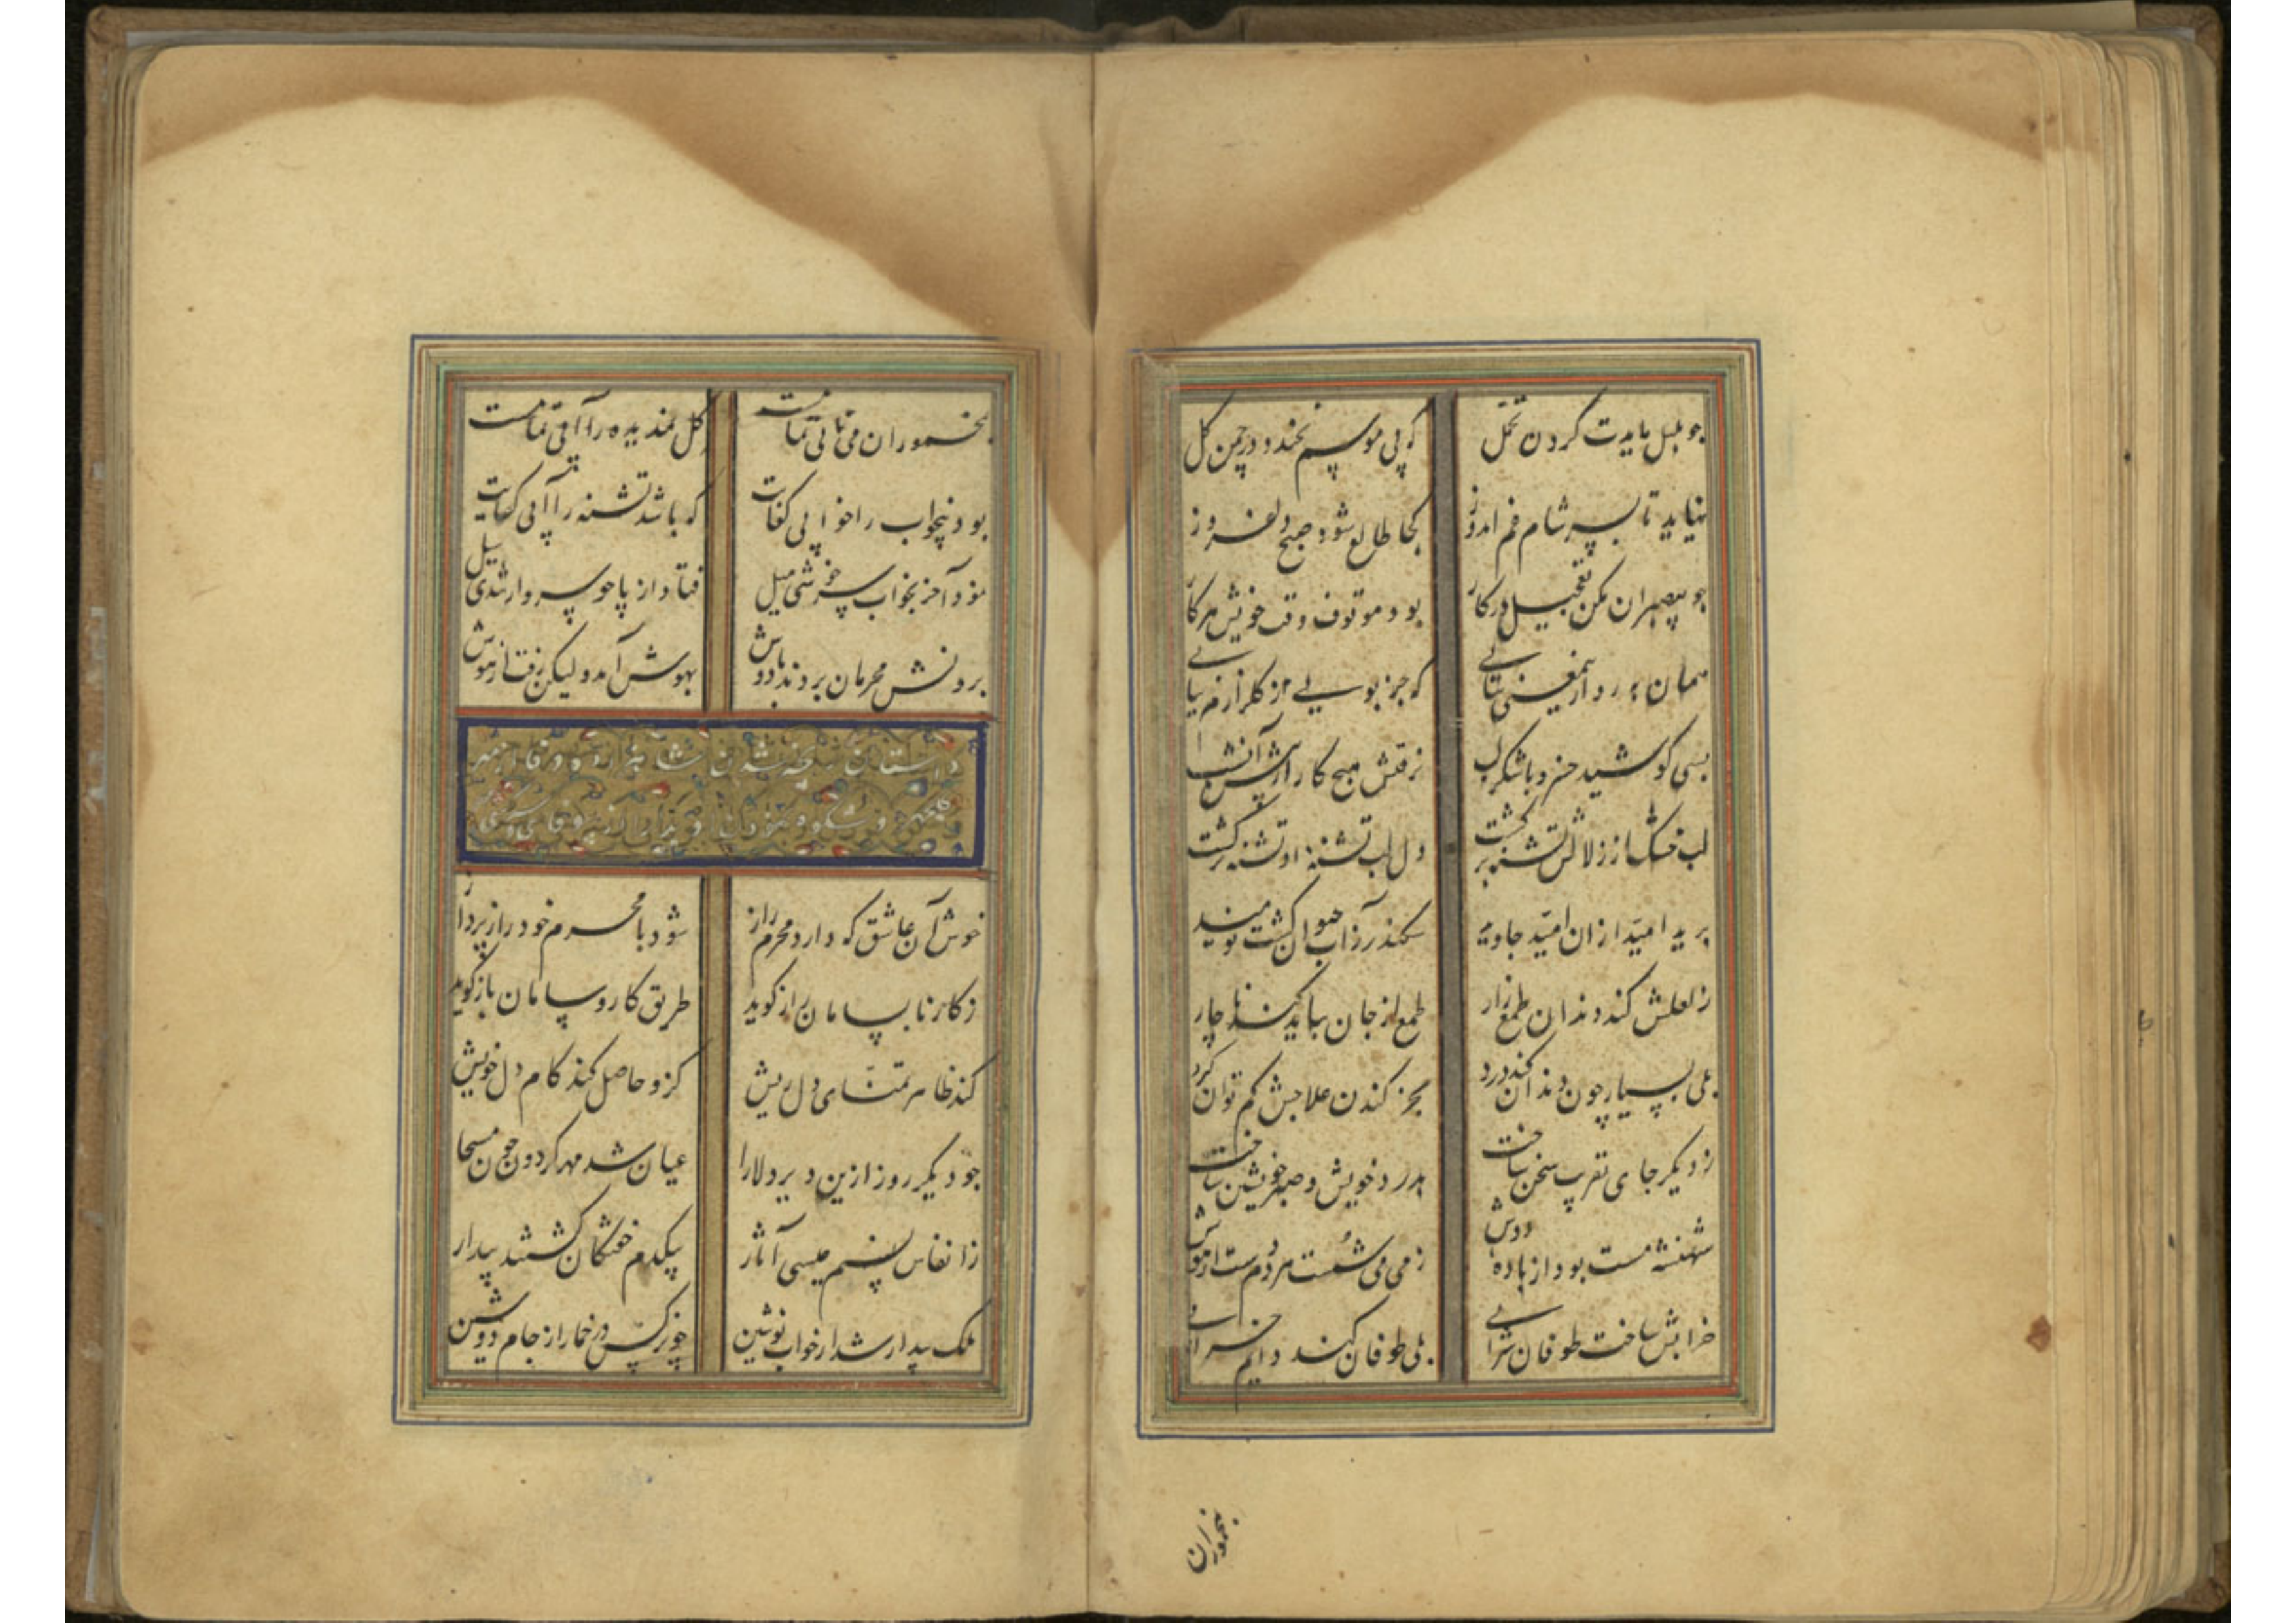 چو بلبل بایدت کردن تحمل
که بی موسم نخندد در چمن گل
نیاید تا بسر شام غم اندوز
کجا طالع شود صبح دلفروز
چو بیصبران مکن تعجیل در کار
بود موقوف وقت خویش هر کار
همان به رو ازیمعنی نتابی
که جز بویی ازین گلزار نیابی
بسی کوشید خسرو با شکرلب
نرفتش هیچ کار از پیش آنشب
لب خشک از زلالش تشنه برگشت
دل لب تشنه او تشنه تر گشت
برید امید ازان امید جاوید
سکندر ز آب حیوان گشت نومید
ز لعلش کند دندان طمع زار
طمع از جان بباید کند ناچار
بلی بسیار چون دندان کند درد
بجز کندن علاجش کم توان کرد
ز دیگر جای تقریب سخن ساخت
بدرد خویش و صبر خویشتن ساخت
شهنشه مست بود از باده دوش
ز می می شست مردم دست از هوش
خرابش ساخت طوفان شرابی
بلی طوفان کند دایم خرابی
بخموران
بخموران می نابی تمامست
گل نمدیده را آبی تمامست
بود بیخواب را خوابی کفایت
که باشد تشنه را آبی کفایت
نمود آخر بخواب سرخوشی میل
فتاد از پا چو سرو از تندی سیل
برونش محرمان بردند بر دوش
بهوش آمد ولیکن رفت از هوش
داستان
خوش آن عاشق که دارد محرم راز
شود با محرم خود راز پرداز
ز کار نابسامان راز گوید
طریق کار و سامان باز گوید
کند ظاهر تمنای دل ریش
کزو حاصل کند کام دل خویش
چو دیگر روز ازین دیر دلارا
عیان شد مهر گردون چون مسیحا
ز انفاس نسیم عیسی آثار
بیکدم خفتگان گشتند بیدار
ملک بیدار شد از خواب نوشین
چو نرگس در خمار از جام دوشین